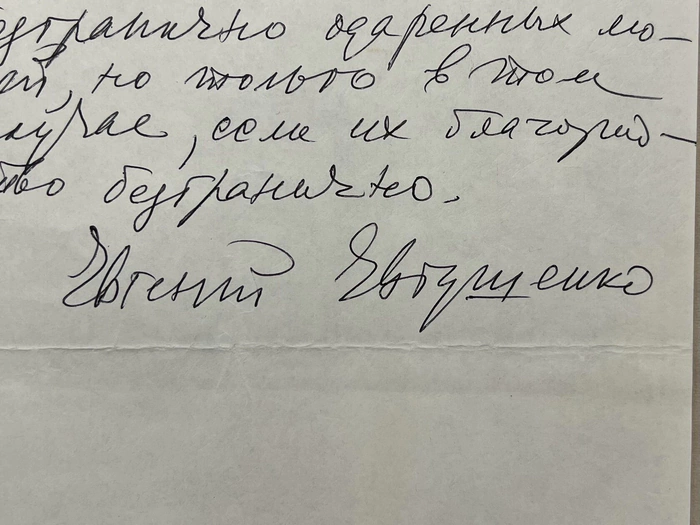 безгранично одаренных лю-
й, но только в том
лучае, если их благород-
тво безгранично.
Евгений Евтушенко